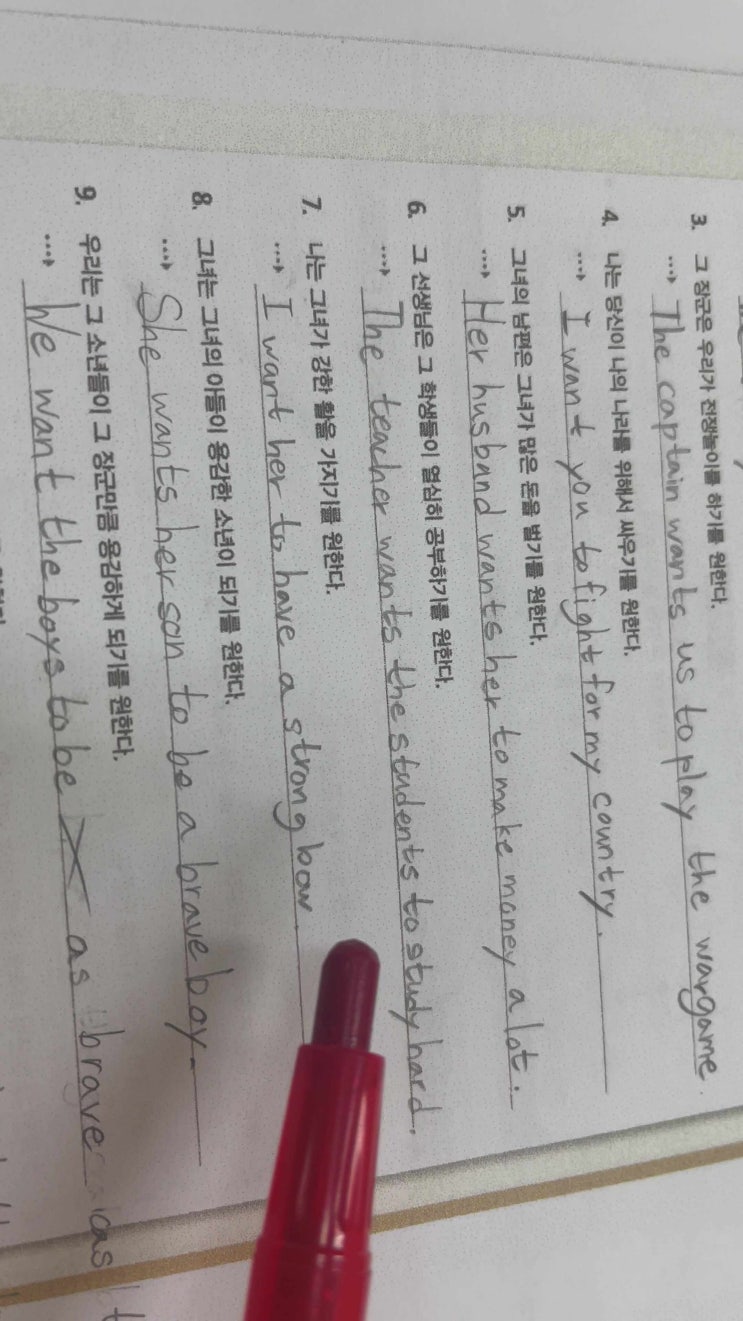 3. 그 장군은 우리가 전쟁놀이를 하기를 원한다.
The captain wants us to play the wargame.
4. 나는 당신이 나의 나라를 위해서 싸우기를 원한다.
I want you to fight for my country.
5. 그녀의 남편은 그녀가 많은 돈을 벌기를 원한다.
Her husband wants her to make money a lot.
6. 그 선생님은 그 학생들이 열심히 공부하기를 원한다.
The teacher wants the students to study hard.
7. 나는 그녀가 강한 활을 가지기를 원한다.
I want her to have a strong bow.
8. 그녀는 그녀의 아들이 용감한 소년이 되기를 원한다.
She wants her son to be a brave boy.
9. 우리는 그 소년들이 그 장군만큼 용감하게 되기를 원한다.
We want the boys to be as brave as